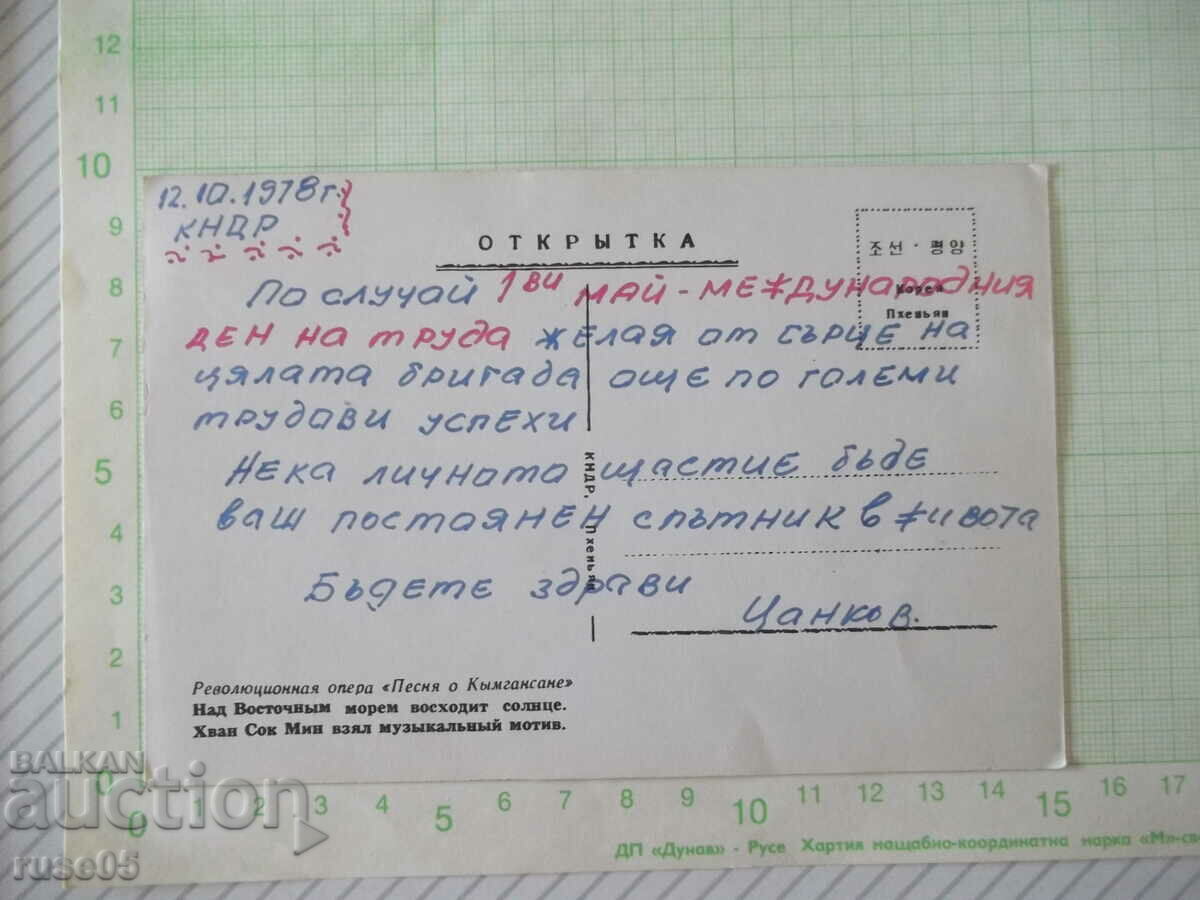 12.10.1978 г.
КНДР
ОТКРЫТКА
조선 · 평양
Корея
Пхеньян
По случай 1ви МАЙ - МЕЖДУНАРОДНИЯ
ДЕН НА ТРУДА желая от сърце на
цялата бригада още по големи
трудави успехи
Нека личната щастие бъде
ваш постаянен спътник в живота
Бъдете здрави
Цанков.
КНДР, Пхеньян
Революционная опера «Песня о Кымгансане»
Над Восточным морем восходит солнце.
Хван Сок Мин взял музыкальный мотив.
12
11
10
9
8
7
6
5
4
3
2
1
0
0 1 2 3 4 5 6 7 8 9 10 11 12 13 14 15 16 17
ДП «Дунав» - Русе Хартия мащабно-координатна марка «Мл-св
BALKAN
auction
ruse05